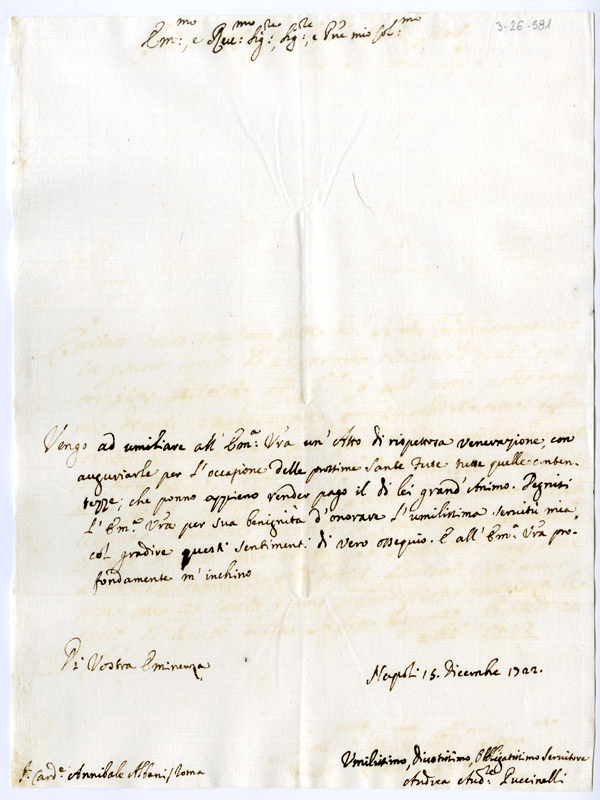 3-26-581
Em:mo, e Reu:mo Sig:re, Sig:re, e Prne mio Col:mo
Vengo ad umiliare all' Em:a Vra un' Atto di rispettosa venerazione, con
auguriarle per l'occasione delle prossime Sante Feste tutte quelle conten-
tezze, che ponno appieno render pago il di lei grand' Animo. Degnisi
l' Em:a Vra per sua benignità d'onorare l'umilissima servitù mia
col gradire questi sentimenti di vero ossequio. E all' Em:a Vra pro-
fondamente m' inchino
Di Vostra Eminenza
Napoli 15. Dicembre 1722.
Umilissimo, Divotissimo, Obbligatissimo Servitore
Andrea And:re Puccinelli
Sr Card:e Annibale Albani / Roma